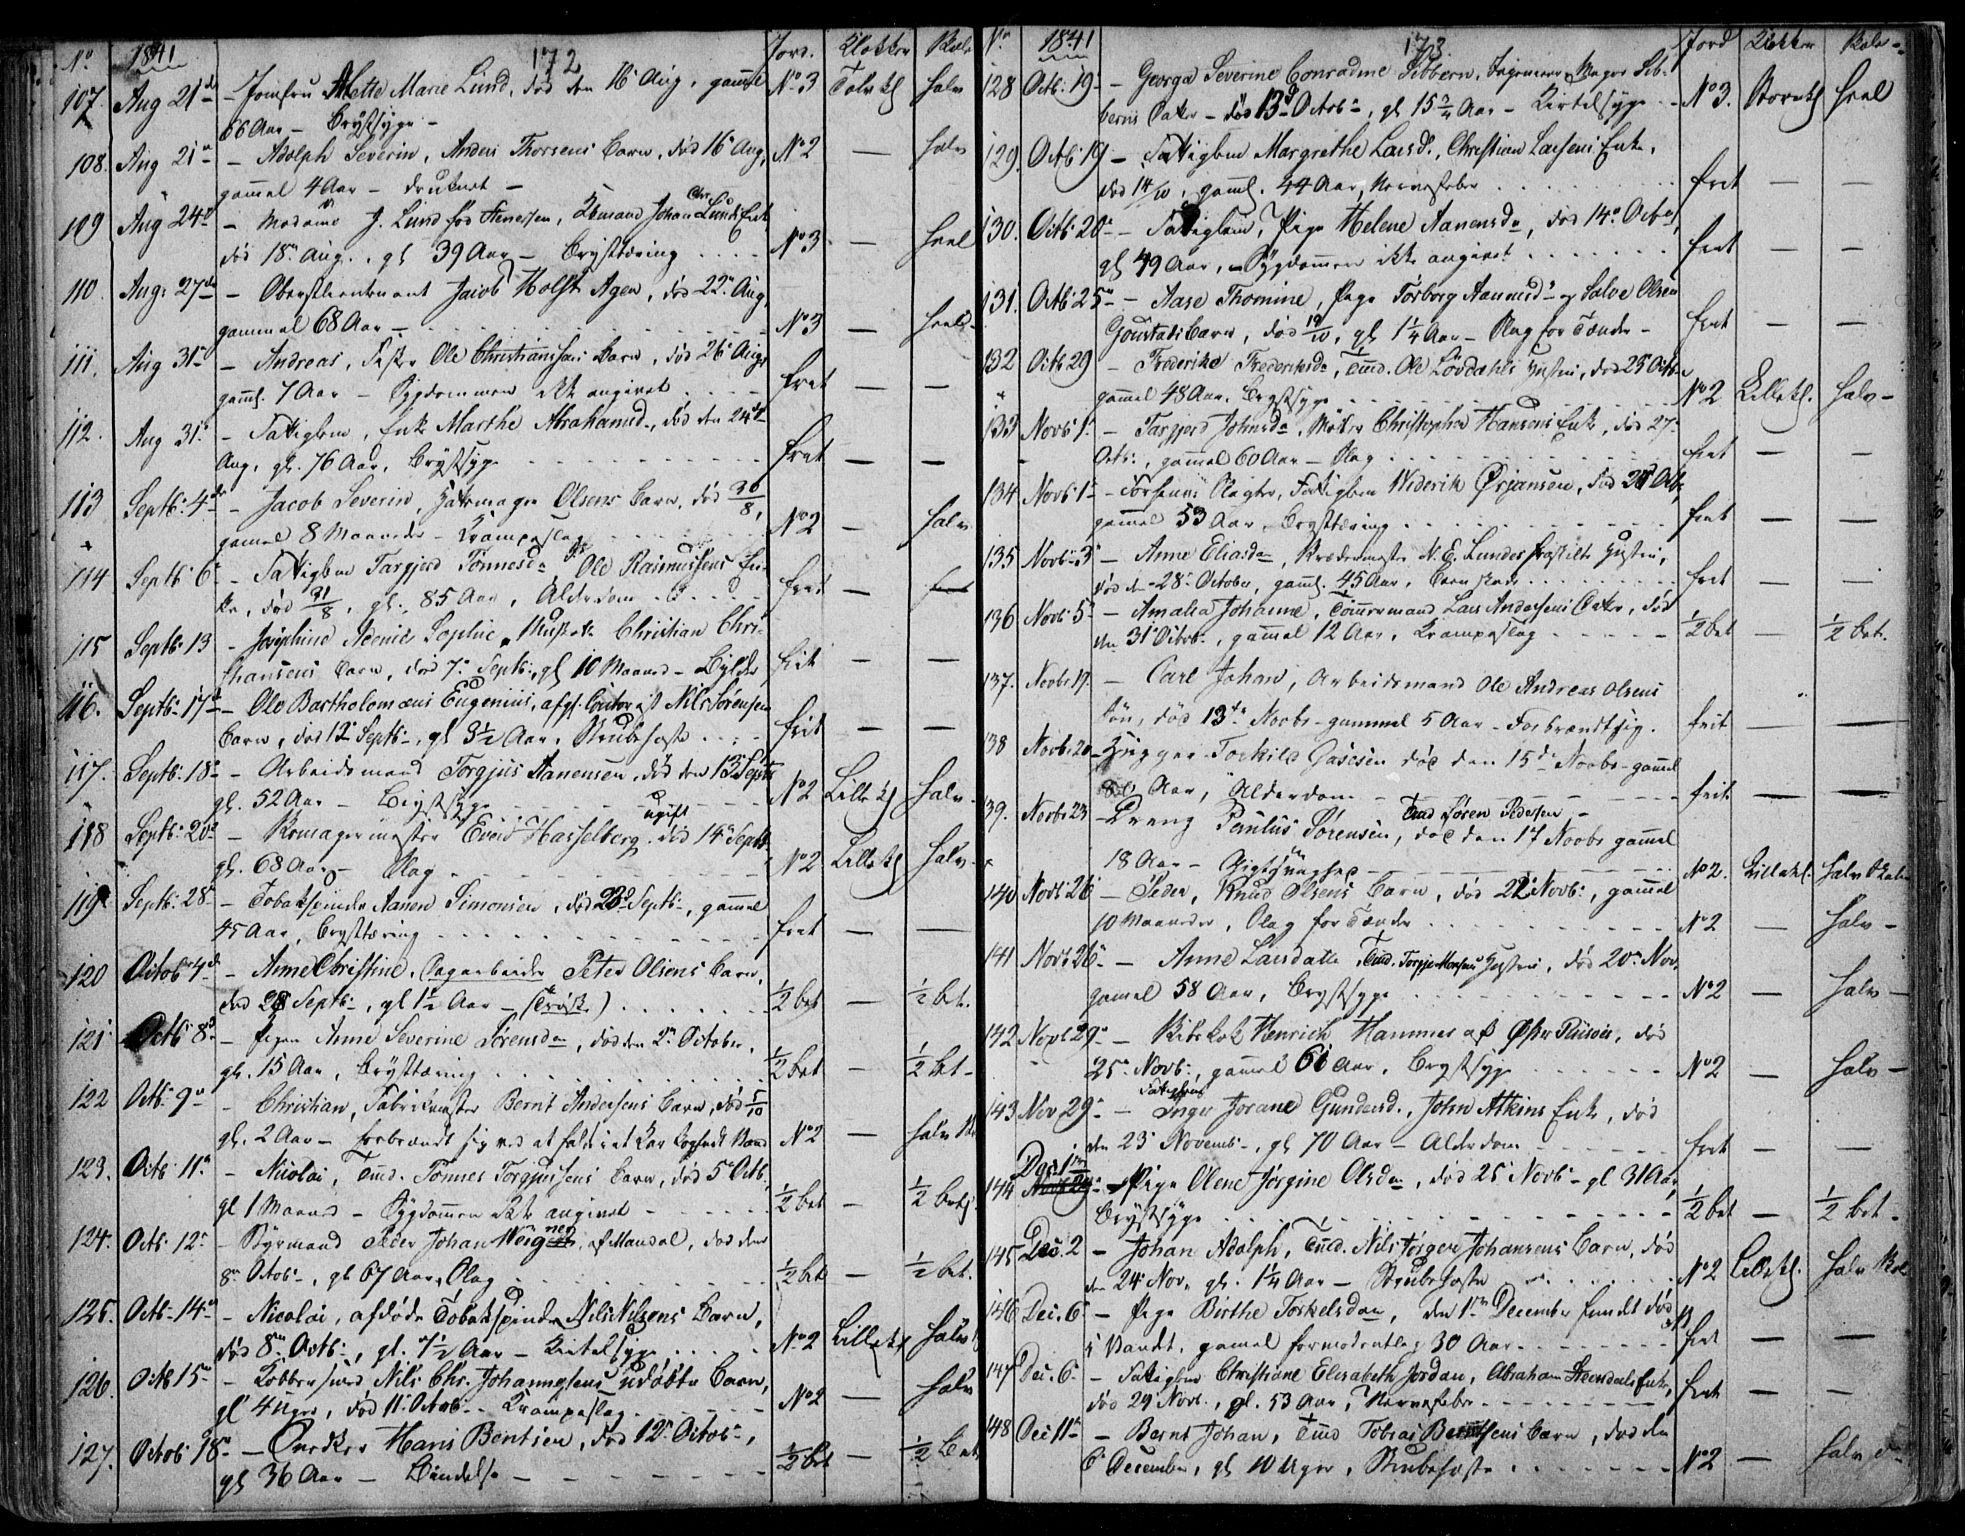 172
No 1841 Jord. Klokker Baare
107. Aug 21de – Jomfru Mette Marie Lund, død den 16 Aug, gammel No 3 halv
66 Aar – Brystsyge –
108. Aug 21de – Adolph Severin, Anders Thorsens Barn, død 16 Aug, No 2 — halv
gammel 4 Aar – druknet –
109 Aug 24de – Madame J. Lund født Kiømand Johan Chr. Lunds Enke
død 18de Aug., gl 39 Aar – Brysttæring . . . . No 3 — heel
110. Aug: 27de – Oberstlieutenant Jacob Holst Agen, død 22de Aug,
gammel 68 Aar – No 3 — heel
111. Aug 31de – Andreas, Ole Christiansens Barn, død 26 Aug,
gaml. 7 Aar – Sygdommen ikke angivet frit — —
112. Aug 31. – Fattiglem, Enke Marthe Abrahamsd., død den 24de
Aug, gl. 76 Aar, Brystsyge frit — —
113 Septb: 4de – Jacob Severin, Olsens Barn, død 30/8,
gammel 8 Maaneder – Krampeslag No 2 — halv
114 Septb: 6 – Fattiglem Targjerd Tønnesd. Ole Rasmussens En-
ke, død 31/8, gl. 85 Aar, Alderdom frit —
115 Septb: 13 – Josephine Sophie, Christian Chri-
stiansens Barn, død 7. Septb:, gl 10 Maaned – Bylder frit — —
116. Septb: 17de – Ole Bartholomæus Eugenius, afg. Contorist Nils Sørensens
Barn, død 12 Septb:, gl 3½ Aar, Strubehoste frit — —
117. Septb: 18de – Arbeidsmand Torgjus Aanensen, død den 13 Septb
gl. 52 Aar – Brystsyge No 2 Lille kl halv
118 Septb: 20de – Even Hasselberg, ugift død 14de Septb
gl. 68 Aar – Slag No 2 Lille kl halv
119 Septb: 28de – Tobakspinder Aanen Simonsen, død 23de Septb:, gammel
45 Aar, Brysttæring frit — —
120 Octob 4de – Anne Christine, Dagarbeider Peter Olsens Barn,
død 28 Septb:, gl 1½ Aar – (Trøsk) ½ bet — ½ bet.
121 Octb 8de – Pigen Anne Severine Sørensd., død den 2de October,
gl. 15 Aar, Brysttæring ½ bet — ½ bet –
122 Octb: 9de – Christian, Fabrikmester Bernt Andersens Barn, død 5/10
gl. 2 Aar – forbrændt sig ved at falde i et Kar koghedt Vand No 2 — halv
123. Octb: 11de – Nicolai, Tmd. Tønnes Torgjussens Barn, død 5 Octb,
gl 1 Maaned – Sygdommen ikke angivet ½ bet — ½ bet
124. Octb: 12de – Styrmand Peder Johan Wegner, af Mandal, død den
8de Octob:, gl 67 Aar, Slag ½ bet — ½ bet.
125. Octb 14de – Nicolai, afdøde Tobakspinder Nils Nilsens Barn,
død 8de Octb:, gl. 7½ Aar – Kirtelsyge No 2 Lille kl halv
126. Octb 15de – Kobbersmed Nils Chr. Johannesens udøbte Barn,
gl 4 Uger, død 11 Octob – Krampeslag No 2 — halv
127. Octob: 18de – Hans Bentsen, død 12 Octob:,
gl 36 Aar – ½ bet — ½ bet
173
No 1841 Jord Klokker Baare
128 Octb: 19 – Georga Severine Conradine Sibbern, Major Sib-
berns Datter – død 13de Octob:, gl 15¾ Aar – Kirtelsyge No 3. Store kl heel
129. Octb: 19 – Fattiglem Margrethe Larsd., Christian Larsens Enke,
død 14/10, gaml. 44 Aar, Nervefeber frit — —
130. Octb: 20de – Fattiglem, Pige Helene Aanensd., død 14de Octob,
gl 49 Aar, – Sygdommen ikke angivet frit — —
131. Octb: 25de – Aase Thomine, Pige Torborg Aanensd. og Salve Olsen
Gourstads Barn, død 19/10, gl 1¼ Aar – Slag for Tænder – frit — —
132 Octb 29 – Frederike Frederiksd., Tmd. Ole Løvdahls Hustru, død 25 Octb
gammel 48 Aar, Brystsyge No 2 Lille kl. halv –
133 Novb 1. – Targjerd Johnsd., Christopher Hansens Enke, død 27
Octb:, gammel 60 Aar – Slag frit — —
134 Novb: 1de – Slagter, Fattiglem Widerik Ørjansen, død 27 Octb,
gammel 53 Aar – Brysttæring frit — —
135 Novb: 3 – Anne Eliasd., N. E. Lundes fraskilte Hustru,
død den 28. October, gaml. 45 Aar, frit — —
136 Novb: 5 – Amalia Johanne, Tømmermand Lars Andersens Datter, død
den 31 Octob:, gammel 12 Aar, Krampeslag ½ bet — ½ bet.
137. Novbr 19. – Carl Johan, Arbeidsmand Ole Andreas Olsens
Søn, død 13de Novbr – gammel 5 Aar – Forbrændt sig. frit — —
138 Novbr: 20 – Torkild død den 15de Novbr – gammel
Aar, Alderdom – frit — —
139. Novbr 23 – Dreng Paulus Sørensen, Tmd Søren Pedersen – død den 17 Novbr gammel
18 Aar – No 2. Lille kl. halv
140 Novb: 26 – Peder, Knud Olsens Barn, død 22 Novb:, gammel
10 Maaneder, Slag for Tænder No 2 — halv –
141 Novb 26 – Anne Larsdatter Tmd. Hustru, død 20de Nov,
gammel 58 Aar, Brystsyge No 2 — halv –
142 Novb 29de – Henrich Hammer af Øster Riisøer, død
25de Novb:, gammel 61 Aar, Brystsyge No 2 — halv –
143 Nov 29de – Fattiglem Inger Jorane Gundersd., John Atkins Enke, død
den 23 Novemb:, gl 70 Aar – Alderdom frit — —
144 Dec: 1ste – Pige Olene Jørgine Olsd., død 25 Novb – gl 31 Aar,
Brystsyge ½ bet — ½ bet –
145 Dec: 2 – Johan Adolph, Tmd. Nils Jørgen Johansens Barn, død
den 24 Nov. gl. 1¼ Aar – Strubehoste No 2 Lille kl. halv
146 Dec. 6 – Pige Birthe Torkelsd., den 1ste December fundet død
i Vandet, gammel formodentlig 30 Aar frit — —
147 Dec. 6 – Fattiglem Christiane Elisabeth Jordan, Abraham Enke,
død 29 Novb., gl. 53 Aar, Nervefeber frit — —
148 Dec 11te – Bernt Johan, Tmd Tobias Berntsens Barn, død den
6 December, gl 10 Uger, Strubehoste No 2 — halv